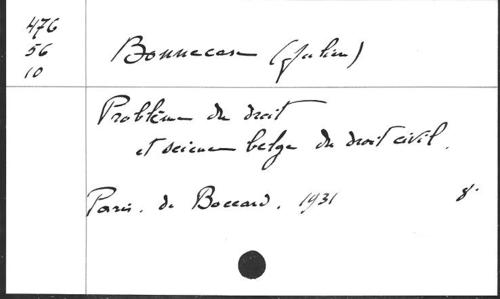 476
56
10
Bonnecase (Julien)
Problème du droit
et science belge du droit civil.
Paris. de Boccard. 1931 8°